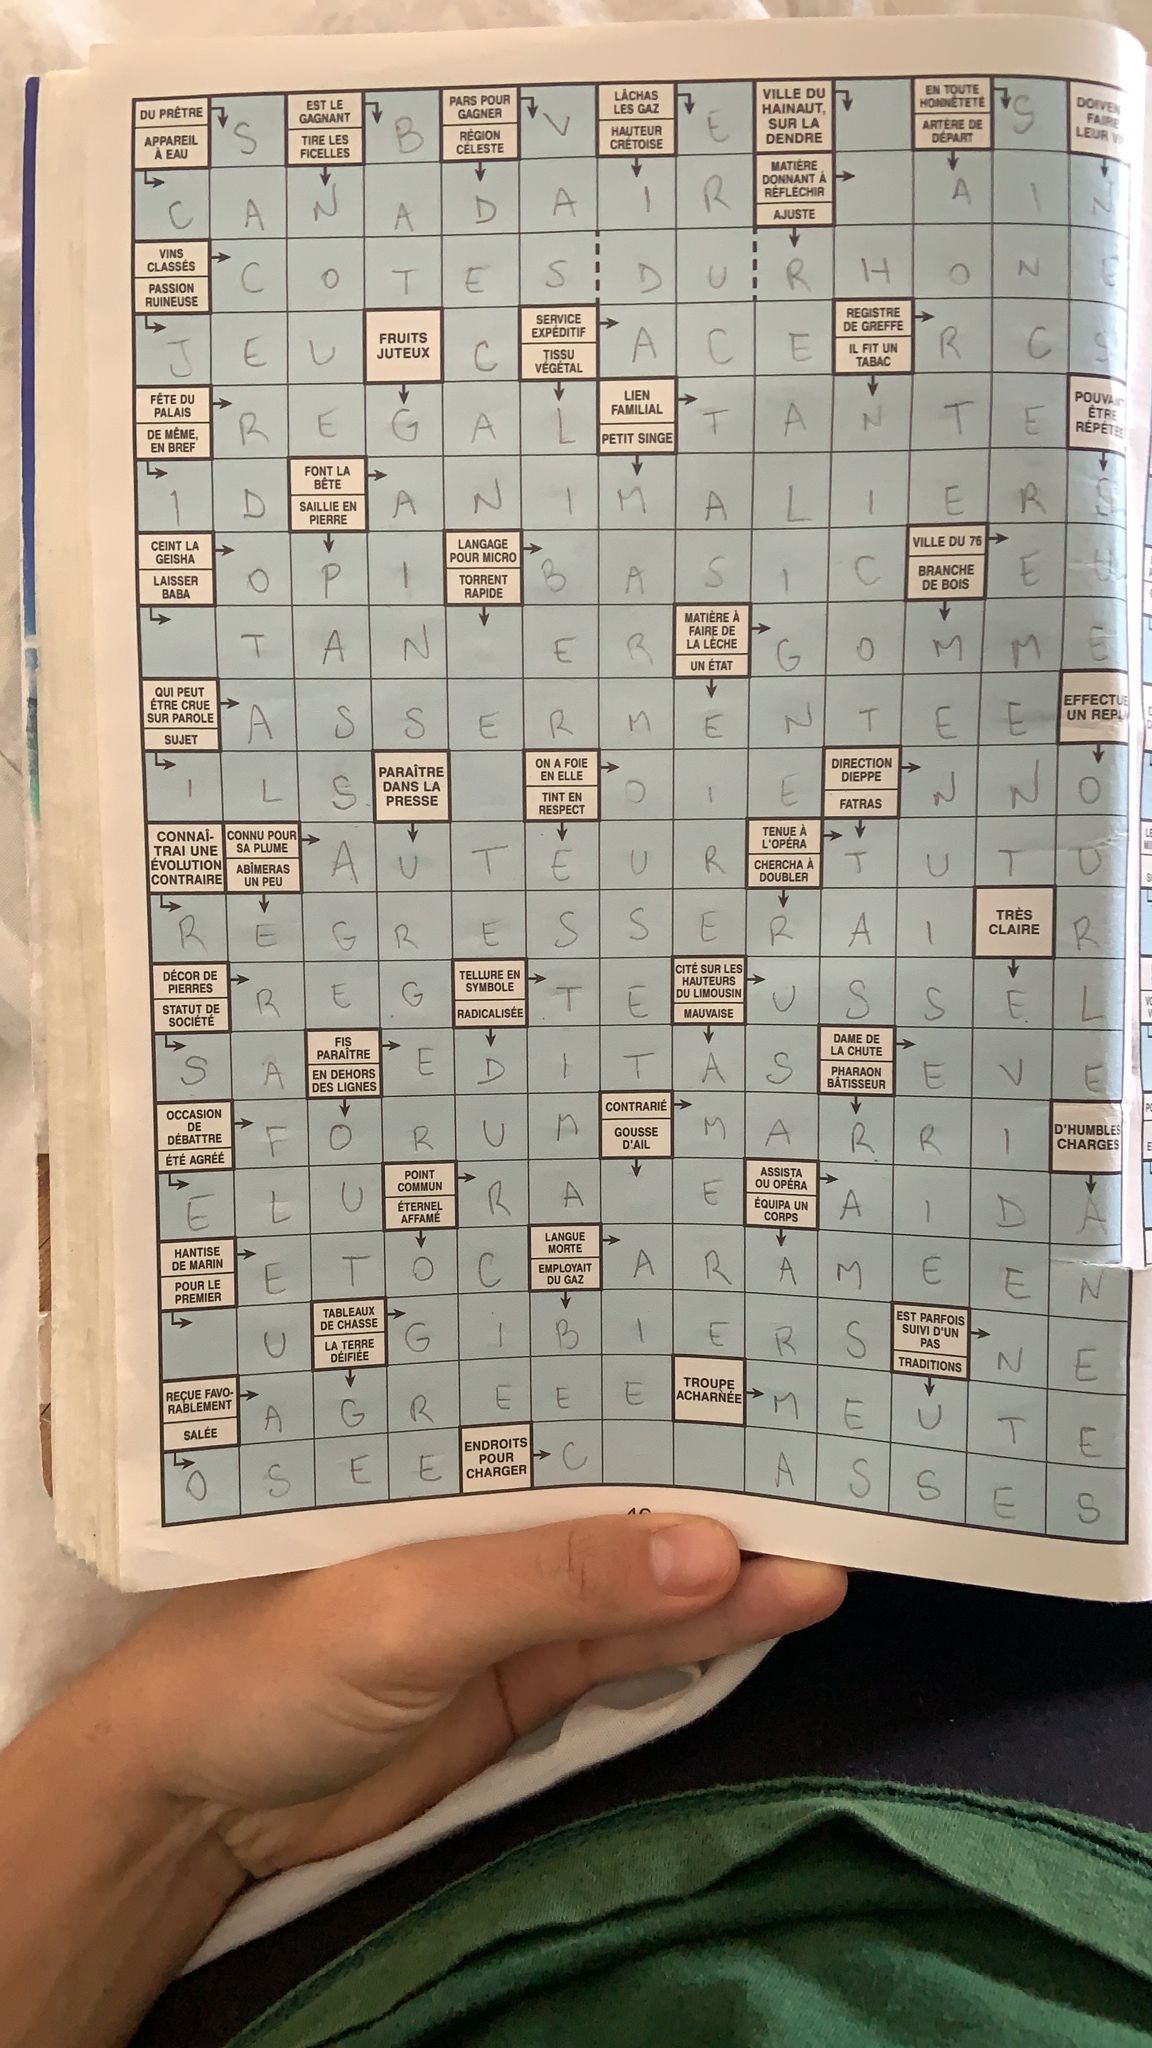 DU PRÊTRE
APPAREIL À EAU
S
EST LE GAGNANT
TIRE LES FICELLES
B
PARS POUR GAGNER
RÉGION CÉLESTE
V
LÂCHAS LES GAZ
HAUTEUR CRÉTOISE
E
VILLE DU HAINAUT, SUR LA DENDRE
EN TOUTE HONNÊTETÉ
ARTÈRE DE DÉPART
S
DOIVEN FAIRE LEUR
C A N A D A I R
MATIÈRE DONNANT À RÉFLÉCHIR
AJUSTE
A I N
VINS CLASSÉS
PASSION RUINEUSE
C O T E S D U R H O N E
J E U
FRUITS JUTEUX
C
SERVICE EXPÉDITIF
TISSU VÉGÉTAL
A C E
REGISTRE DE GREFFE
IL FIT UN TABAC
R C S
FÊTE DU PALAIS
DE MÊME, EN BREF
R E G A L
LIEN FAMILIAL
PETIT SINGE
T A N T E
POUVA ÊTRE RÉPÉTÉE
I D
FONT LA BÊTE
SAILLIE EN PIERRE
A N I M A L I E R S
CEINT LA GEISHA
LAISSER BABA
O P I
LANGAGE POUR MICRO
TORRENT RAPIDE
B A S I C
VILLE DU 76
BRANCHE DE BOIS
E U
T A N E R
MATIÈRE À FAIRE DE LA LÈCHE
UN ÉTAT
G O M M E
QUI PEUT ÊTRE CRUE SUR PAROLE
SUJET
A S S E R M E N T E E
EFFECTUE UN REPL
I L S
PARAÎTRE DANS LA PRESSE
ON A FOIE EN ELLE
TINT EN RESPECT
O I E
DIRECTION DIEPPE
FATRAS
N N O
CONNAÎTRAI UNE ÉVOLUTION CONTRAIRE
CONNU POUR SA PLUME
ABÎMERAS UN PEU
A U T E U R
TENUE À L'OPÉRA
CHERCHA À DOUBLER
T U T U
R E G R E S S E R A I
TRÈS CLAIRE
R
DÉCOR DE PIERRES
STATUT DE SOCIÉTÉ
R E G
TELLURE EN SYMBOLE
RADICALISÉE
T E
CITÉ SUR LES HAUTEURS DU LIMOUSIN
MAUVAISE
U S S E L
S A
FIS PARAÎTRE
EN DEHORS DES LIGNES
E D I T A S
DAME DE LA CHUTE
PHARAON BÂTISSEUR
E V E
OCCASION DE DÉBATTRE
ÉTÉ AGRÉÉ
F O R U M
CONTRARIÉ
GOUSSE D'AIL
M A R R I
D'HUMBLES CHARGES
E L U
POINT COMMUN
ÉTERNEL AFFAMÉ
R A E
ASSISTA OU OPÉRA
ÉQUIPA UN CORPS
A I D A
HANTISE DE MARIN
POUR LE PREMIER
E T O C
LANGUE MORTE
EMPLOYAIT DU GAZ
A R A M E E N
U
TABLEAUX DE CHASSE
LA TERRE DÉIFIÉE
G I B I E R S
EST PARFOIS SUIVI D'UN PAS
TRADITIONS
N E
REÇUE FAVORABLEMENT
SALÉE
A G R E E E
TROUPE ACHARNÉE
M E U T E
O S E E
ENDROITS POUR CHARGER
C A S S E S